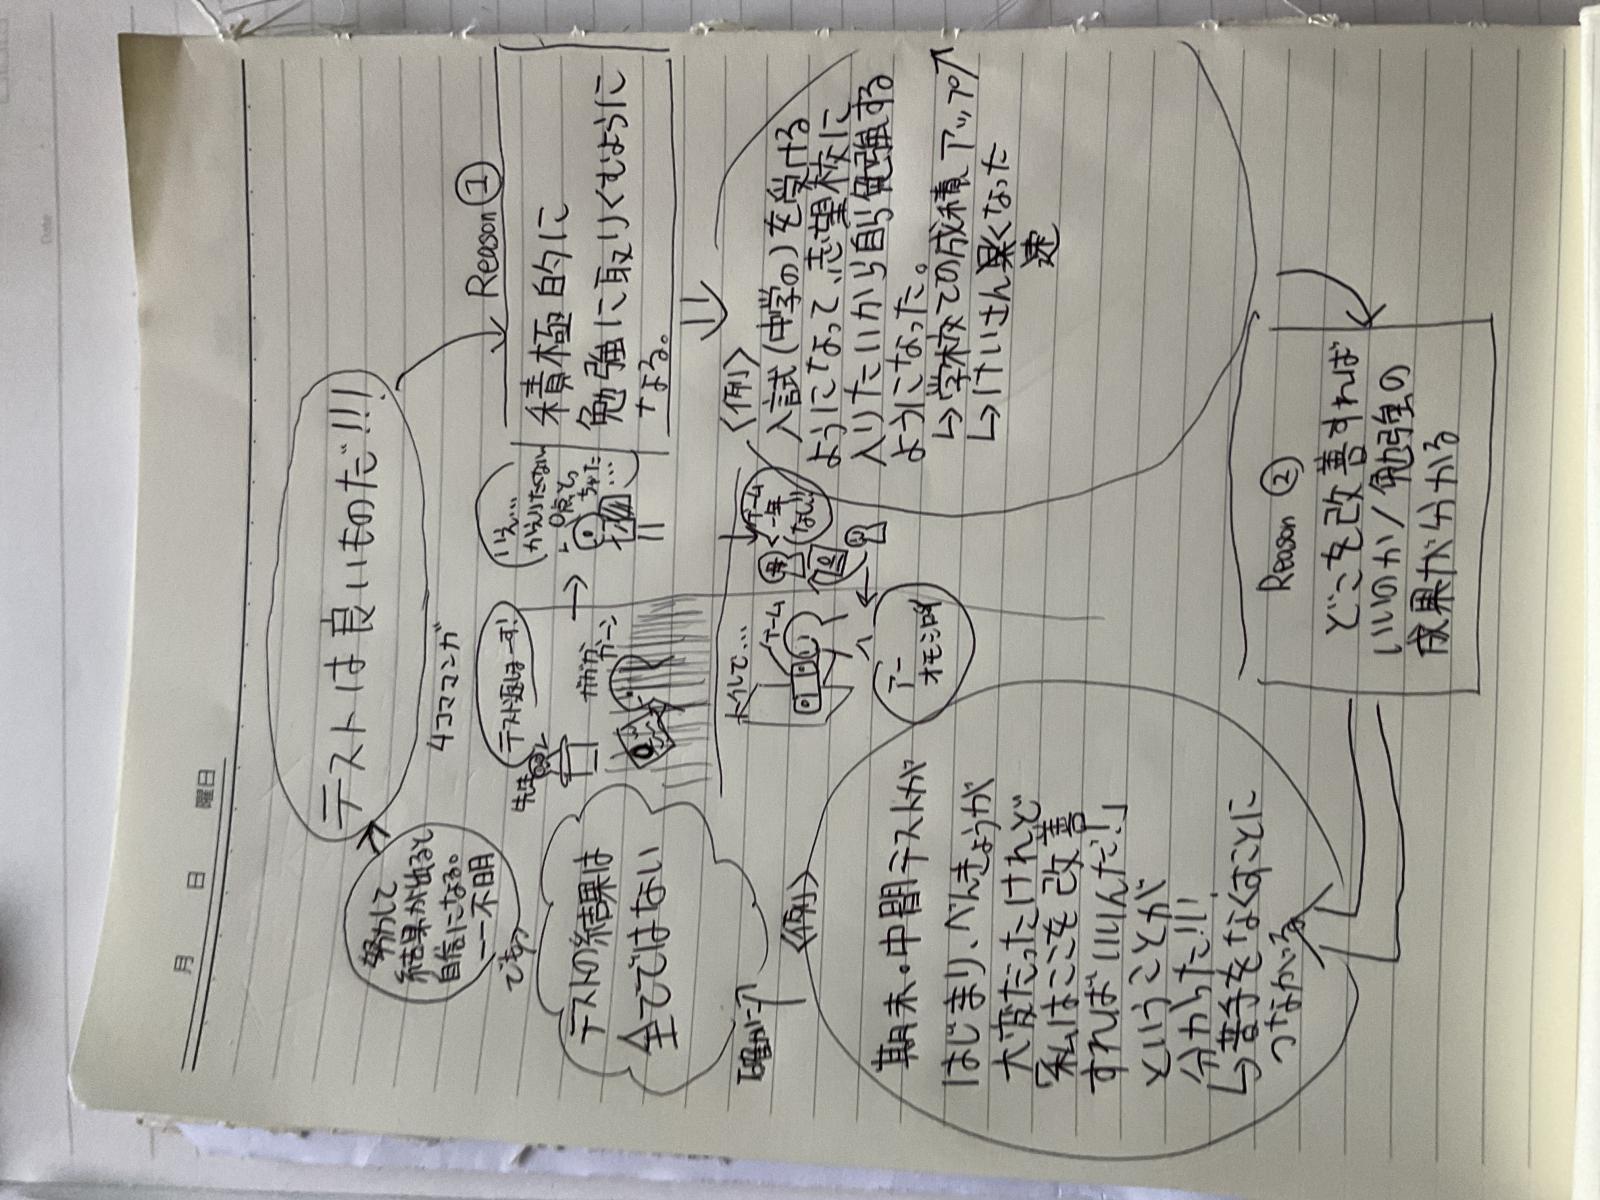 月 日 曜日
Date
テストは良いものだ!!!
Reason ①
積極的に
勉強に取りくむように
なる。
〈例〉
入試(中学の)を受ける
ようになって、志望校に
入りたいから自ら勉強する
ようになった。
↳学校での成績アップ↗
↳けいさん
くなった
速
Reason ②
どこを改善すれば
いいのか/勉強の
成果が分かる
〈例〉
期末・中間テストが
はじまり、べんきょうが
大変だったけれど
「私はここを改善
すればいいんだ!」
ということが
分かった!!!
↳苦手をなくすことに
つながる
確かに
テストの結果は
全てではない
でも
努力して
結果が出ると
自信になる。
ー不明
4コママンガ
先生
テスト返しまーす!
ガガガガーン
→
いえ…
かえりたくない
0点とっ
ちゃった
…
母
ゲーム
一年
なし!!
トイレして…
ゲーム
アー
オモシロ